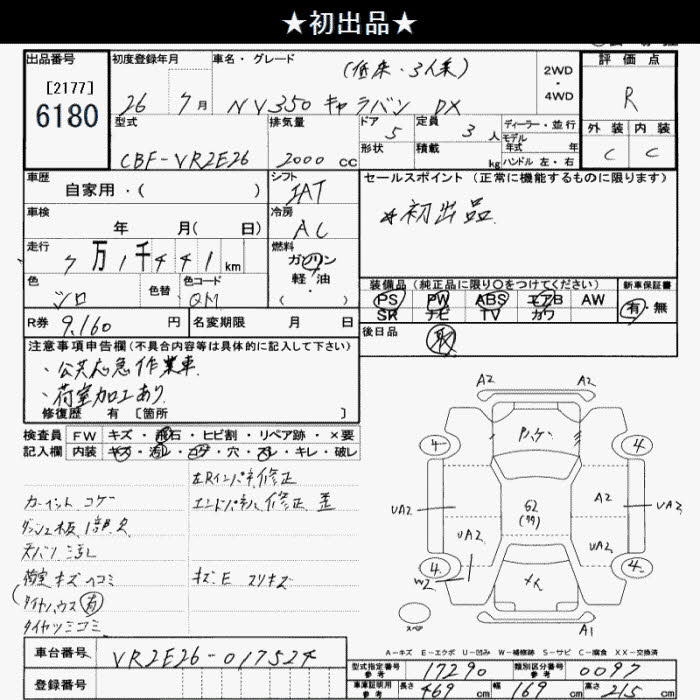 ★初出品★
出品番号
[2177]
6180
初度登録年月
26 7月
車名・グレード
(低床・3人乗)
NV350 キャラバン DX
2WD
・
4WD
評価点
R
外装 内装
C C
型式
CBF-VR2E26
排気量
2000 cc
ドア
5
形状
定員
3 人
積載
kg
ディーラー・並行
モデル
年式 年
ハンドル 左・右
車歴
自家用・( )
シフト
IAT
セールスポイント (正常に機能するものに限ります)
★初出品
車検
年 月( 日)
冷房
AC
走行
7万1千441km
燃料
ガソリン
軽・油
( )
色
シロ
色替
色コード
QM
装備品 (純正品に限り○をつけてください)
PS PW ABS エアB AW
SR ナビ TV カワ
新車保証書
有・無
R券 9,160 円
名変期限 月 日
後日品
取
注意事項申告欄 (不具合内容等は具体的に記入して下さい)
・公共応急作業車
・荷室加工あり
修復歴 有 [箇所 ]
検査員 FW キズ・飛石・ヒビ割・リペア跡・×要
記入欄 内装 キズ・汚レ・コゲ・穴・スレ・キレ・破レ
左Rインパネ修正
カーペット コゲ
エンドパネル修正 歪
ダッシュ板、1部欠
天バリ ヨゴレ
荷室 キズ ヘコミ
キズ、E スリキズ
タイヤハウス 有
タイヤツミコミ
A2 A2
4 4
UA2 A2 UA2
UA2 UA2
4 4
W2
A1
スペア
A-キズ E-エクボ U-凹み W-補修跡 S-サビ C-腐食 XX-交換済
車台番号 VR2E26-017524
登録番号
型式指定番号
参考
17290
類別区分番号
参考
0097
車庫証明用
参考
長さ 469 cm 幅 169 cm 高さ 215 cm